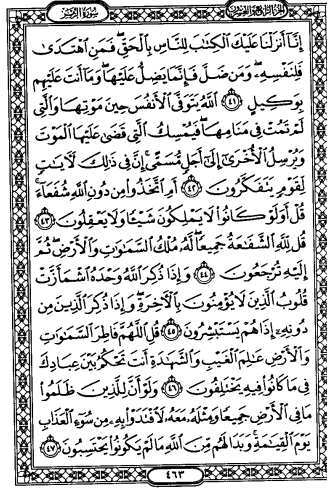 سورة الزمر الجزء الرابع والعشرون
إِنَّا أَنزَلْنَا عَلَيْكَ الْكِتَابَ لِلنَّاسِ بِالْحَقِّ فَمَنِ اهْتَدَىٰ
فَلِنَفْسِهِ وَمَن ضَلَّ فَإِنَّمَا يَضِلُّ عَلَيْهَا وَمَا أَنتَ عَلَيْهِم
بِوَكِيلٍ ٤١ اللَّهُ يَتَوَفَّى الْأَنفُسَ حِينَ مَوْتِهَا وَالَّتِي
لَمْ تَمُتْ فِي مَنَامِهَا فَيُمْسِكُ الَّتِي قَضَىٰ عَلَيْهَا الْمَوْتَ
وَيُرْسِلُ الْأُخْرَىٰ إِلَىٰ أَجَلٍ مُّسَمًّى إِنَّ فِي ذَٰلِكَ لَآيَاتٍ
لِّقَوْمٍ يَتَفَكَّرُونَ ٤٢ أَمِ اتَّخَذُوا مِن دُونِ اللَّهِ شُفَعَاءَ
قُلْ أَوَلَوْ كَانُوا لَا يَمْلِكُونَ شَيْئًا وَلَا يَعْقِلُونَ ٤٣
قُل لِّلَّهِ الشَّفَاعَةُ جَمِيعًا لَّهُ مُلْكُ السَّمَاوَاتِ وَالْأَرْضِ ثُمَّ
إِلَيْهِ تُرْجَعُونَ ٤٤ وَإِذَا ذُكِرَ اللَّهُ وَحْدَهُ اشْمَأَزَّتْ
قُلُوبُ الَّذِينَ لَا يُؤْمِنُونَ بِالْآخِرَةِ وَإِذَا ذُكِرَ الَّذِينَ مِن
دُونِهِ إِذَا هُمْ يَسْتَبْشِرُونَ ٤٥ قُلِ اللَّهُمَّ فَاطِرَ السَّمَاوَاتِ
وَالْأَرْضِ عَالِمَ الْغَيْبِ وَالشَّهَادَةِ أَنتَ تَحْكُمُ بَيْنَ عِبَادِكَ
فِي مَا كَانُوا فِيهِ يَخْتَلِفُونَ ٤٦ وَلَوْ أَنَّ لِلَّذِينَ ظَلَمُوا
مَا فِي الْأَرْضِ جَمِيعًا وَمِثْلَهُ مَعَهُ لَافْتَدَوْا بِهِ مِن سُوءِ الْعَذَابِ
يَوْمَ الْقِيَامَةِ وَبَدَا لَهُم مِّنَ اللَّهِ مَا لَمْ يَكُونُوا يَحْتَسِبُونَ ٤٧
٤٦٣